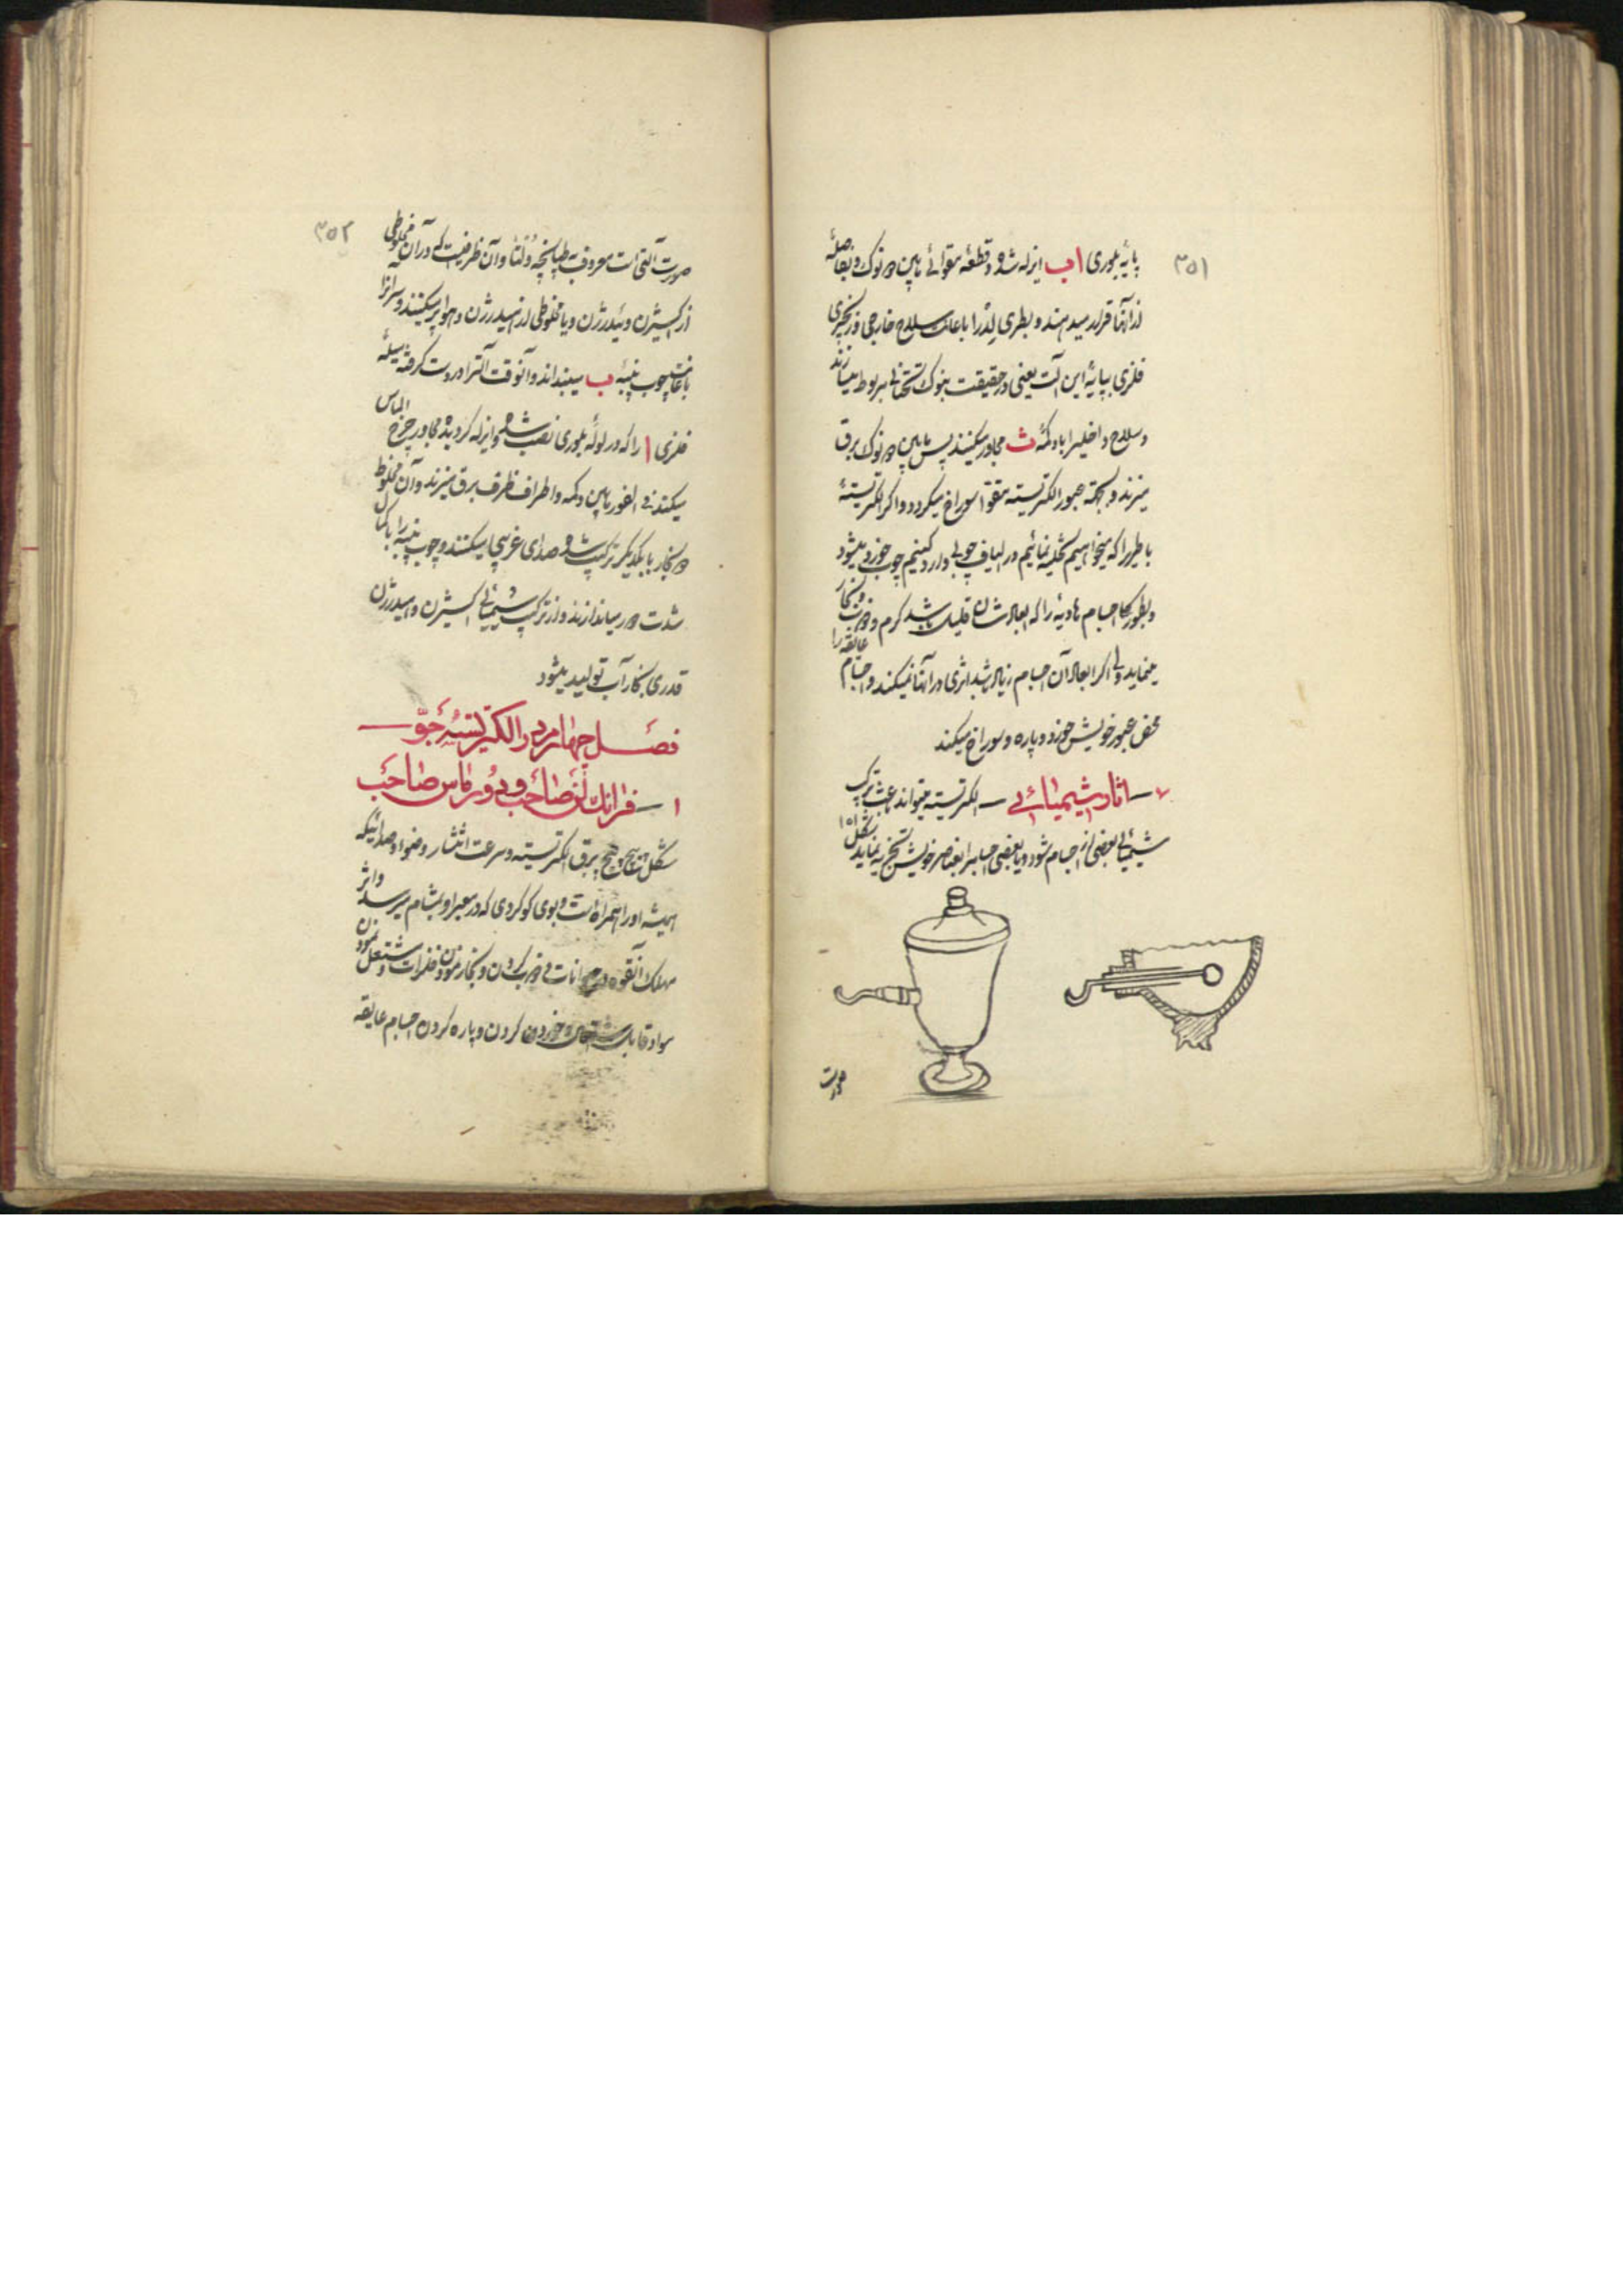 ۳۵۱
پایهٔ بلوری ا ب ایزله شده و قطعهٔ مقوائی مابین دو نوک و بفاصلهٔ
از آنها قرار میدهند و بطری لید را باعانت سلاح خارجی و زنجیری
فلزی بپایهٔ این آلت یعنی در حقیقت بنوک تحتانی مربوط میسازند
و سلاح داخلیرا با دکمهٔ ث مجاور میکنند پس مابین دو نوک برق
میزند و بجهته عبور الکتریسته مقوا سوراخ میگردد و اگر الکتریستهٔ
باطریرا که میخواهیم تخلیه نمائیم در الیاف چوبی وارد کنیم چوب خورد میشود
و بطور کلی اجسام هادیه را که ابعادشان قلیل باشد گرم و ذوب و بخار
مینماید ولی اگر ابعاد آن اجسام زیاد باشد اثری در آنها نمیکند و اجسام عایقه را
محض عبور خویش خورد و پاره و سوراخ میکند
۷ – اثار شیمیائی – الکتریسته میتواند باعث ترکیب
شیمیائی بعضی از اجسام شود و یا بعضی اجسامرا بعناصر خویش تجزیه نماید شکل ۱۵۱
صورت
۳۵۲
صورت آلتی است معروف بطپانچهٔ ولتا و آن ظرفیست که در آن مخلوطی
از اکسیژن و ئیدرژن و یا مخلوطی از ئیدرژن و هوا پر میکنند و سر آنرا
باعانت چوب پنبهٔ ب میبندند و آنوقت آلترا در دست گرفته میلهٔ
فلزی ا را که در لولهٔ بلوری نصب شده و ایزله گردیده مجاور چرخ الماس
میکنند فی الفور مابین دکمه و اطراف ظرف برق میزند و آن مخلوط
دو بخار با یکدیگر ترکیب شده صدای غریبی میکنند و چوب پنبه را بکمال
شدت دور میاندازند و از ترکیب شیمیائی اکسیژن و ئیدرژن
قدری بخار آب تولید میشود
فصل چهارم در الکتریستهٔ جوّ –
۱ – فرانکلن صاحب و دورماس صاحب
شکل پیچ پیچ برق الکتریسته و سرعت انتشار و ضوا و صدائیکه
همیشه او را همراه است و بوی کوکردی که در معبر او بمشام میرسد و اثر
مهلک آنقوه در حیوانات و ذوب کردن و بخار نمودن فلزات و مشتعل نمودن
مواد قابل اشتعال و خورد کردن و پاره کردن اجسام عایقه